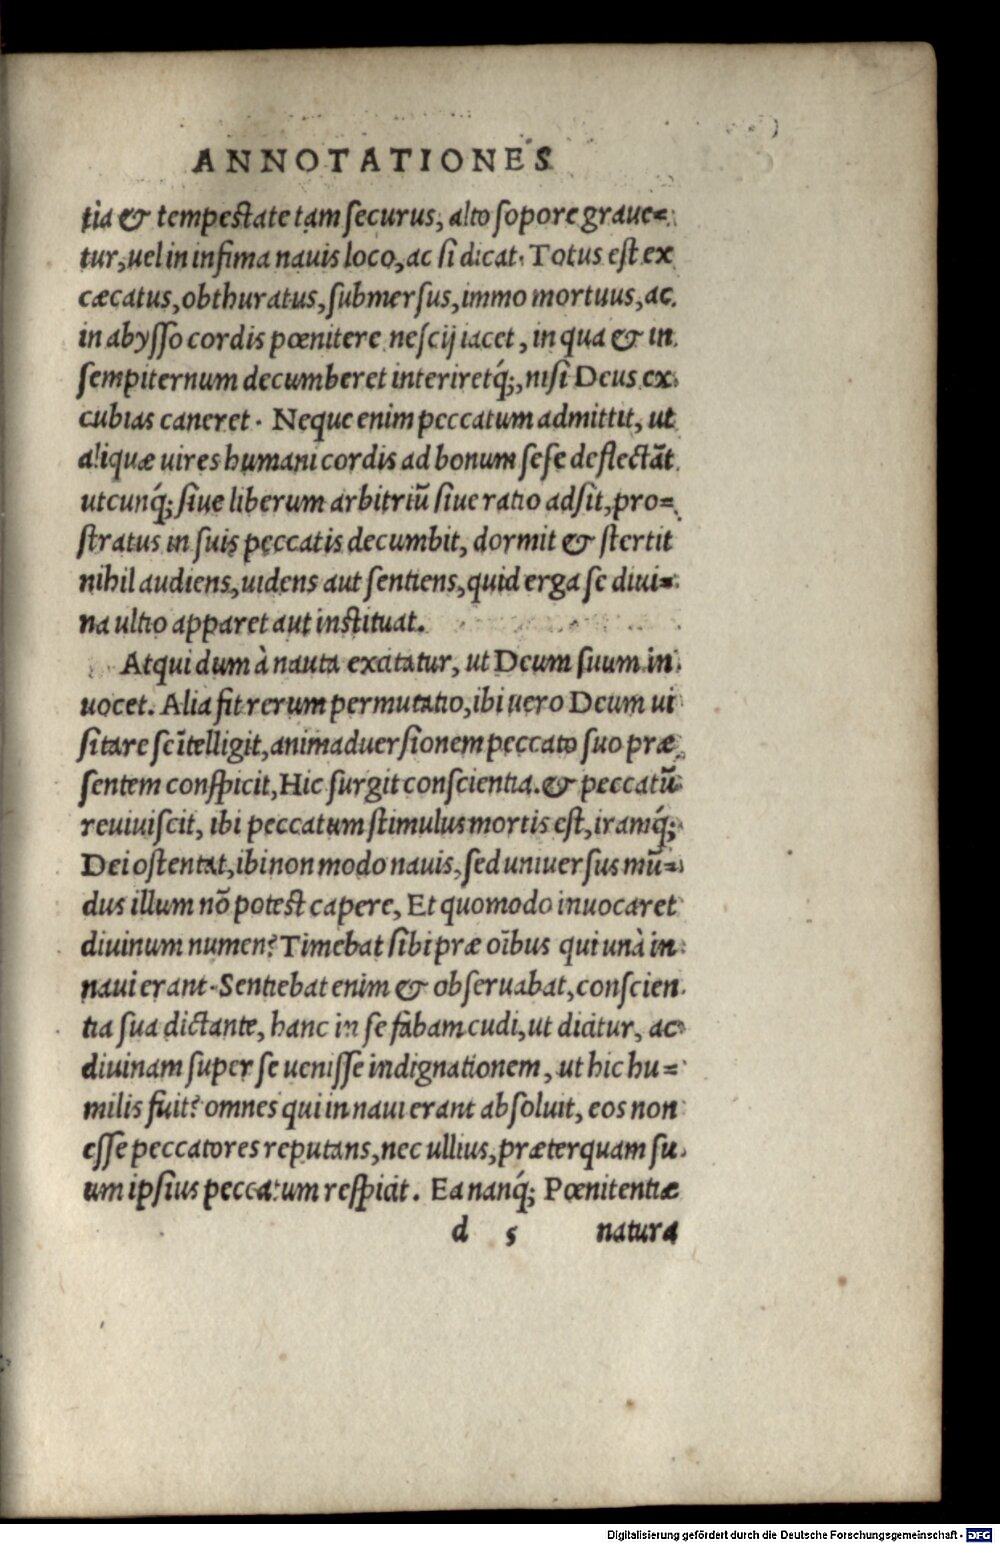 ANNOTATIONES
tia & tempestate tam securus, alto sopore graue=
tur, uel in infima nauis loco, ac si dicat. Totus est ex
cæcatus, obthuratus, submersus, immo mortuus, ac
in abysso cordis pœnitere nescij iacet, in qua & in
sempiternum decumberet interiretq́;, nisi Deus ex
cubias caneret. Neque enim peccatum admittit, ut
aliquæ uires humani cordis ad bonum sese deflectãt
utcunq́; siue liberum arbitriũ siue ratio adsit, pro=
stratus in suis peccatis decumbit, dormit & stertit
nihil audiens, uidens aut sentiens, quid erga se diui=
na ultio apparet aut instituat.
Atqui dum à nauta excitatur, ut Deum suum in
uocet. Alia fit rerum permutatio, ibi uero Deum ui
sitare se ĩtelligit, animaduersionem peccato suo præ
sentem conspicit, Hic surgit conscientia. & peccatũ
reuiuiscit, ibi peccatum stimulus mortis est, iramq́;
Dei ostentat, ibi non modo nauis, sed uniuersus mũ=
dus illum nõ potest capere, Et quomodo inuocaret
diuinum numen? Timebat sibi præ oĩbus qui unà in
naui erant. Sentiebat enim & obseruabat, conscien
tia sua dictante, hanc in se fabam cudi, ut dicitur, ac
diuinam super se uenisse indignationem, ut hic hu=
milis fuit? omnes qui in naui erant absoluit, eos non
esse peccatores reputans, nec ullius, præterquam su
um ipsius peccatum respicit. Ea nanq́; Pœnitentiæ
d 5 natura
Digitalisierung gefördert durch die Deutsche Forschungsgemeinschaft - DFG